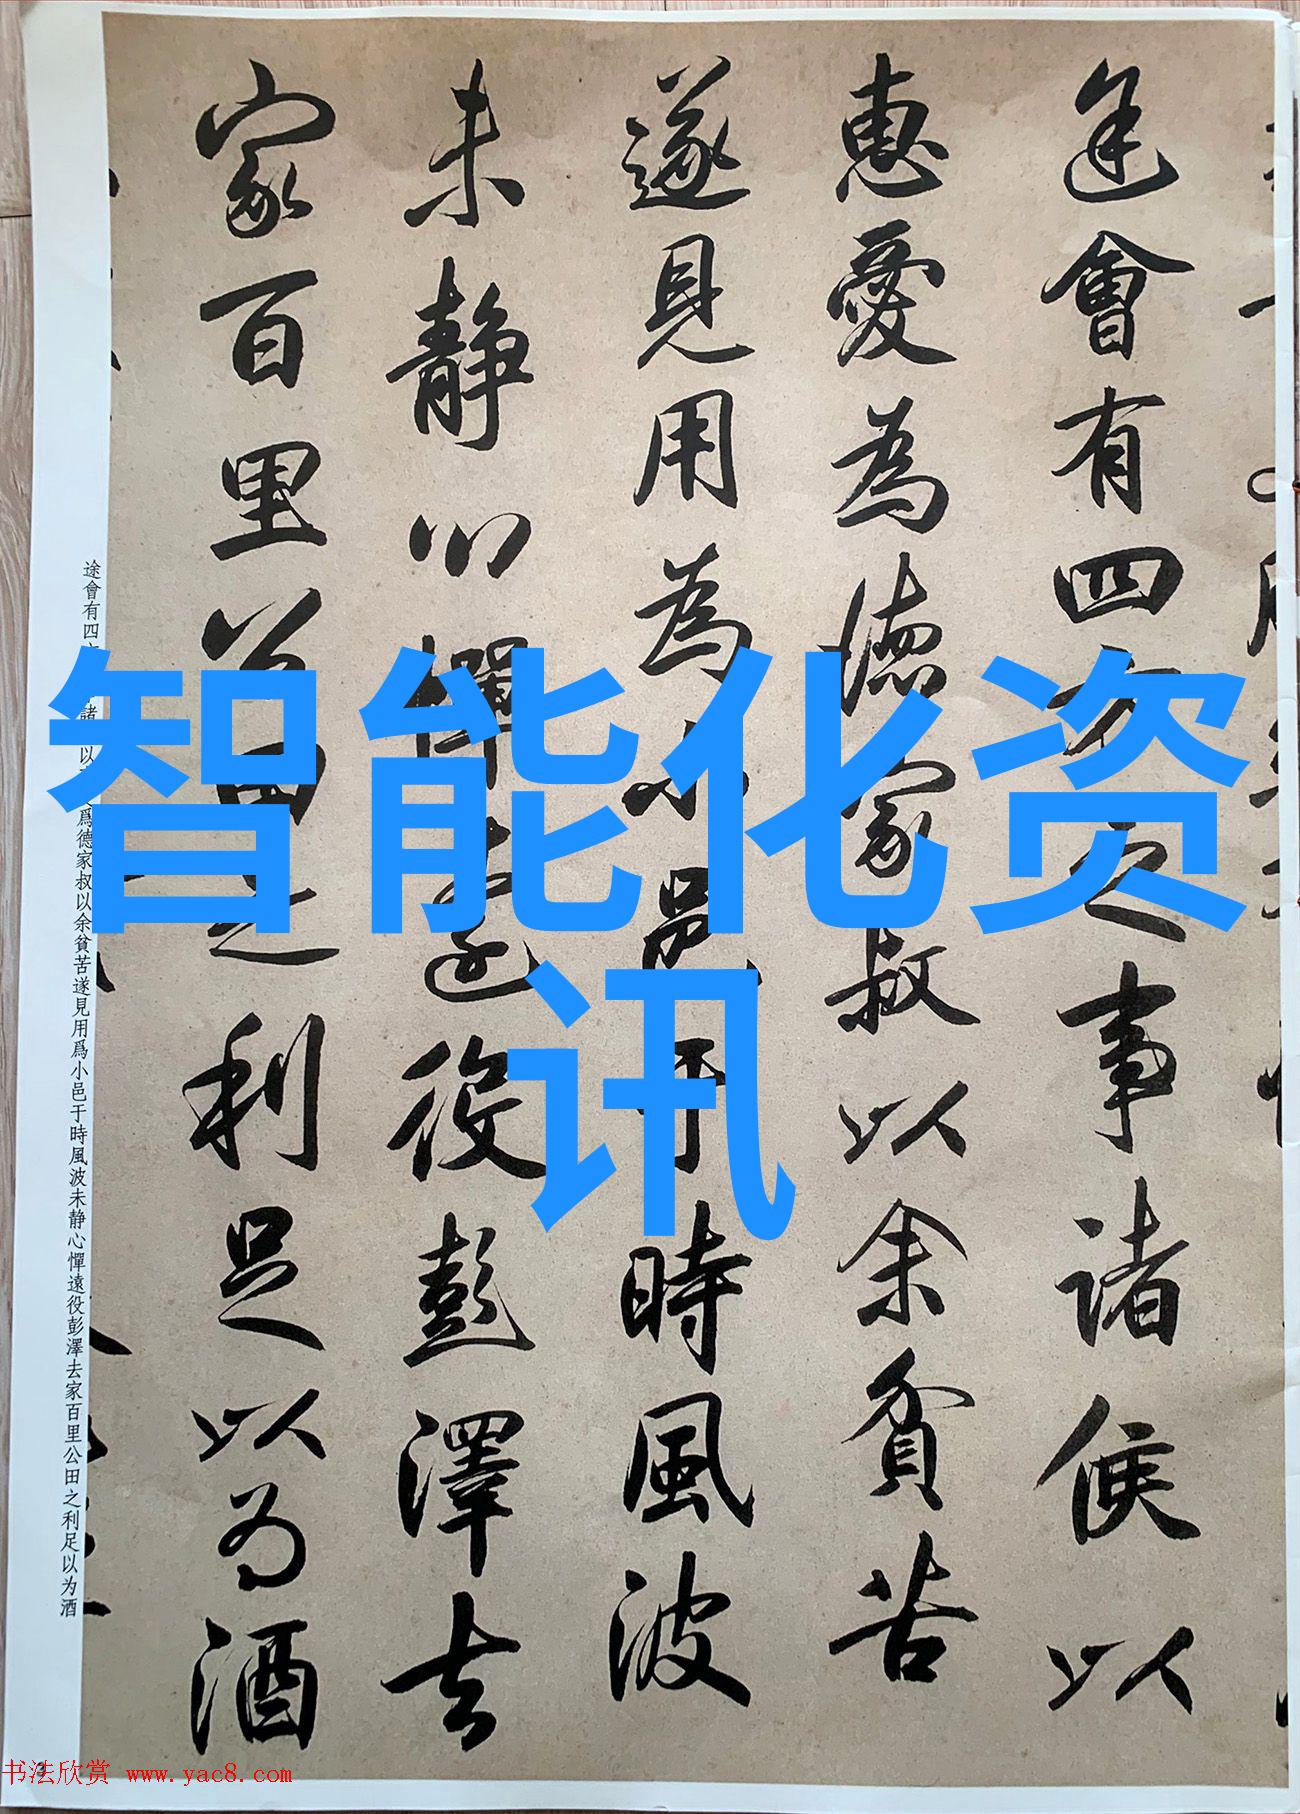 智能化资
讯
途會有四方之事諸侯以
惠愛為德家叔以余貧苦
遂見用為小邑于時風波
未静心憚遠役彭澤去
家百里公田之利足以为酒
途會有四 諸 以 爲德家叔以余貧苦遂見用爲小邑于時風波未静心憚遠役彭澤去家百里公田之利足以为酒
书法欣赏 www.yac8.com